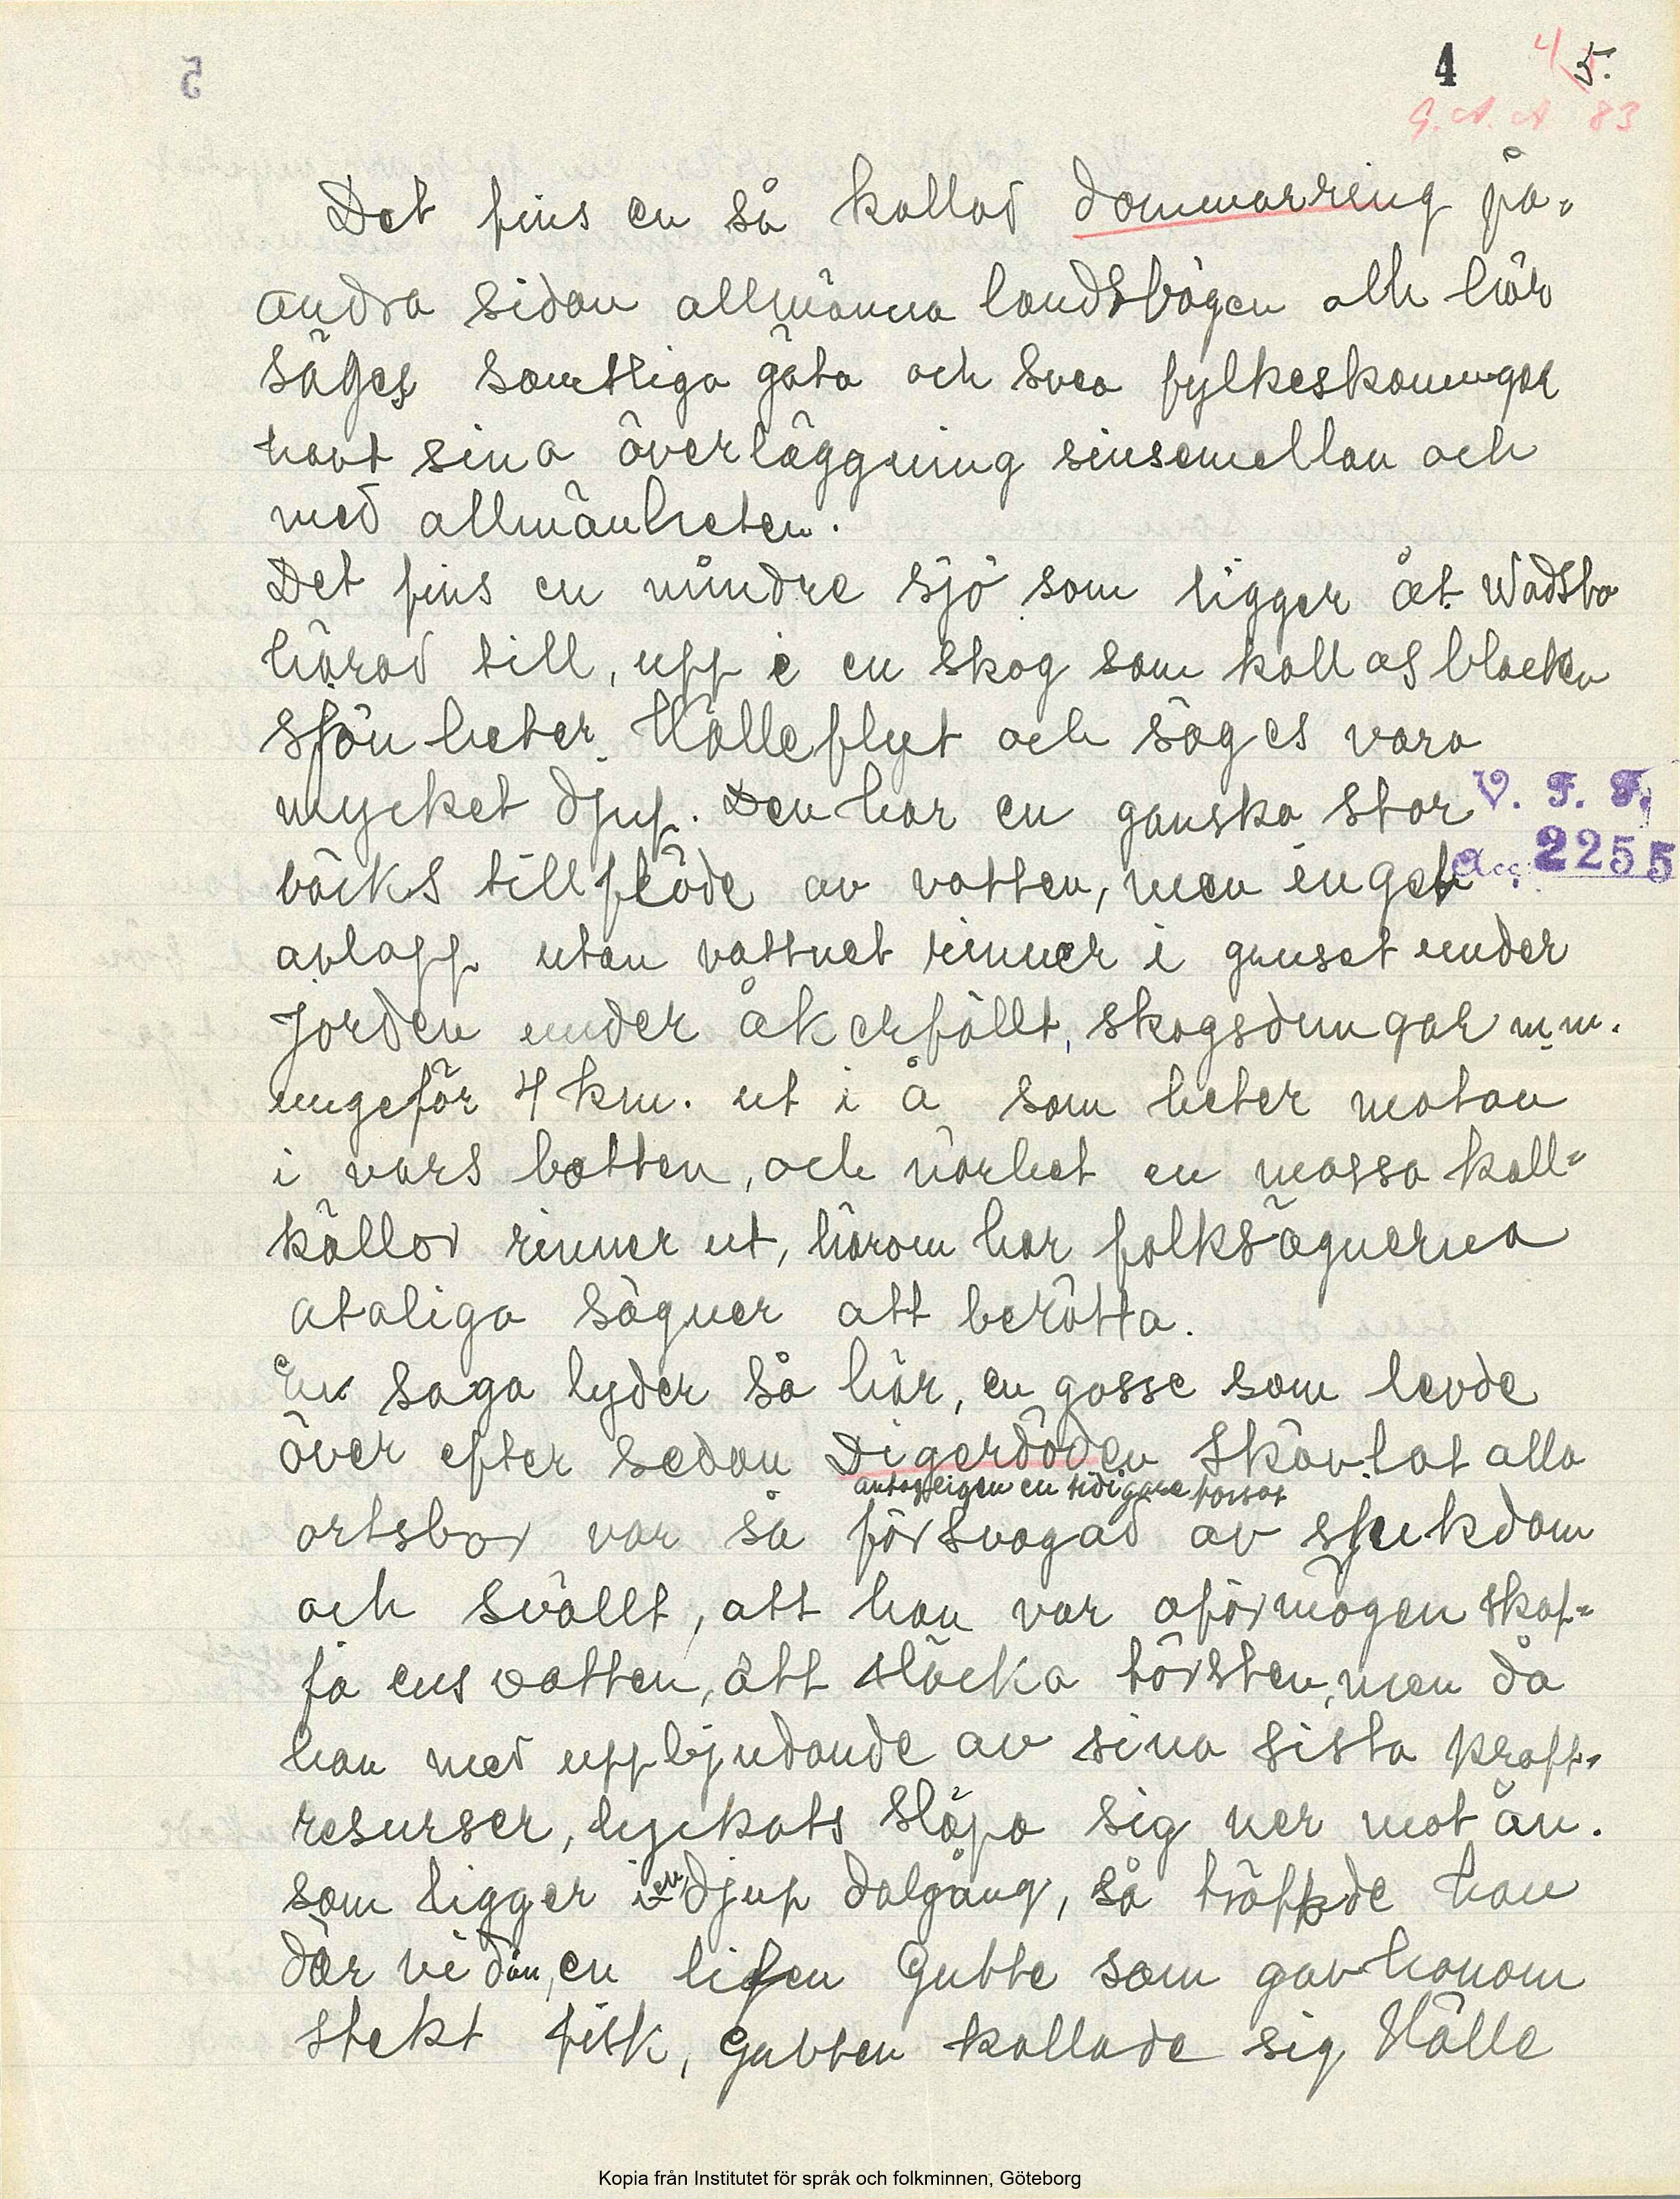 4 4 5.
G.A.A 83
Det fins en så kallad dommarring på-
andra sidan allmänna landsvägen och här
säges samtliga göta och svea fylkeskonungar
havt sina överläggning sinsemellan och
med allmänheten.
Det fins en mindre sjö som ligger åt Wadsbo
härad till, upp i en skog som kallas blacken
sjön heter Hälleflyt och säges vara
mycket djup. Den har en ganska stor
V. F. F.
bäcks tillflöde av vatten, men inget
Acc. 2255
avlopp utan vattnet rinner i gruset under
jorden under åkerfällt, skogsdungar m.m.
ungefär 4 km. ut i å som heter motan
i vars botten, och närhet en massa kall-
källor rinner ut, härom har folksägnerna
ataliga sägner att berätta.
En saga lyder så här, en gosse som levde
över efter sedan Digerdöden skövlat alla
antagligen en tidigare farsot
ortsbor var så försvagad av sjukdom
och svällt, att han var oförmögen skaf-
fa ens vatten, att släcka törsten, men då
han med uppbjudande av sina sista kraft-
resurser, lyckats släpa sig ner mot ån.
som ligger i en djup dalgång, så träffade han
där vid ån, en liten Gubbe som gav honom
stekt fisk, Gubben kallade sig Hälle
Kopia från Institutet för språk och folkminnen, Göteborg